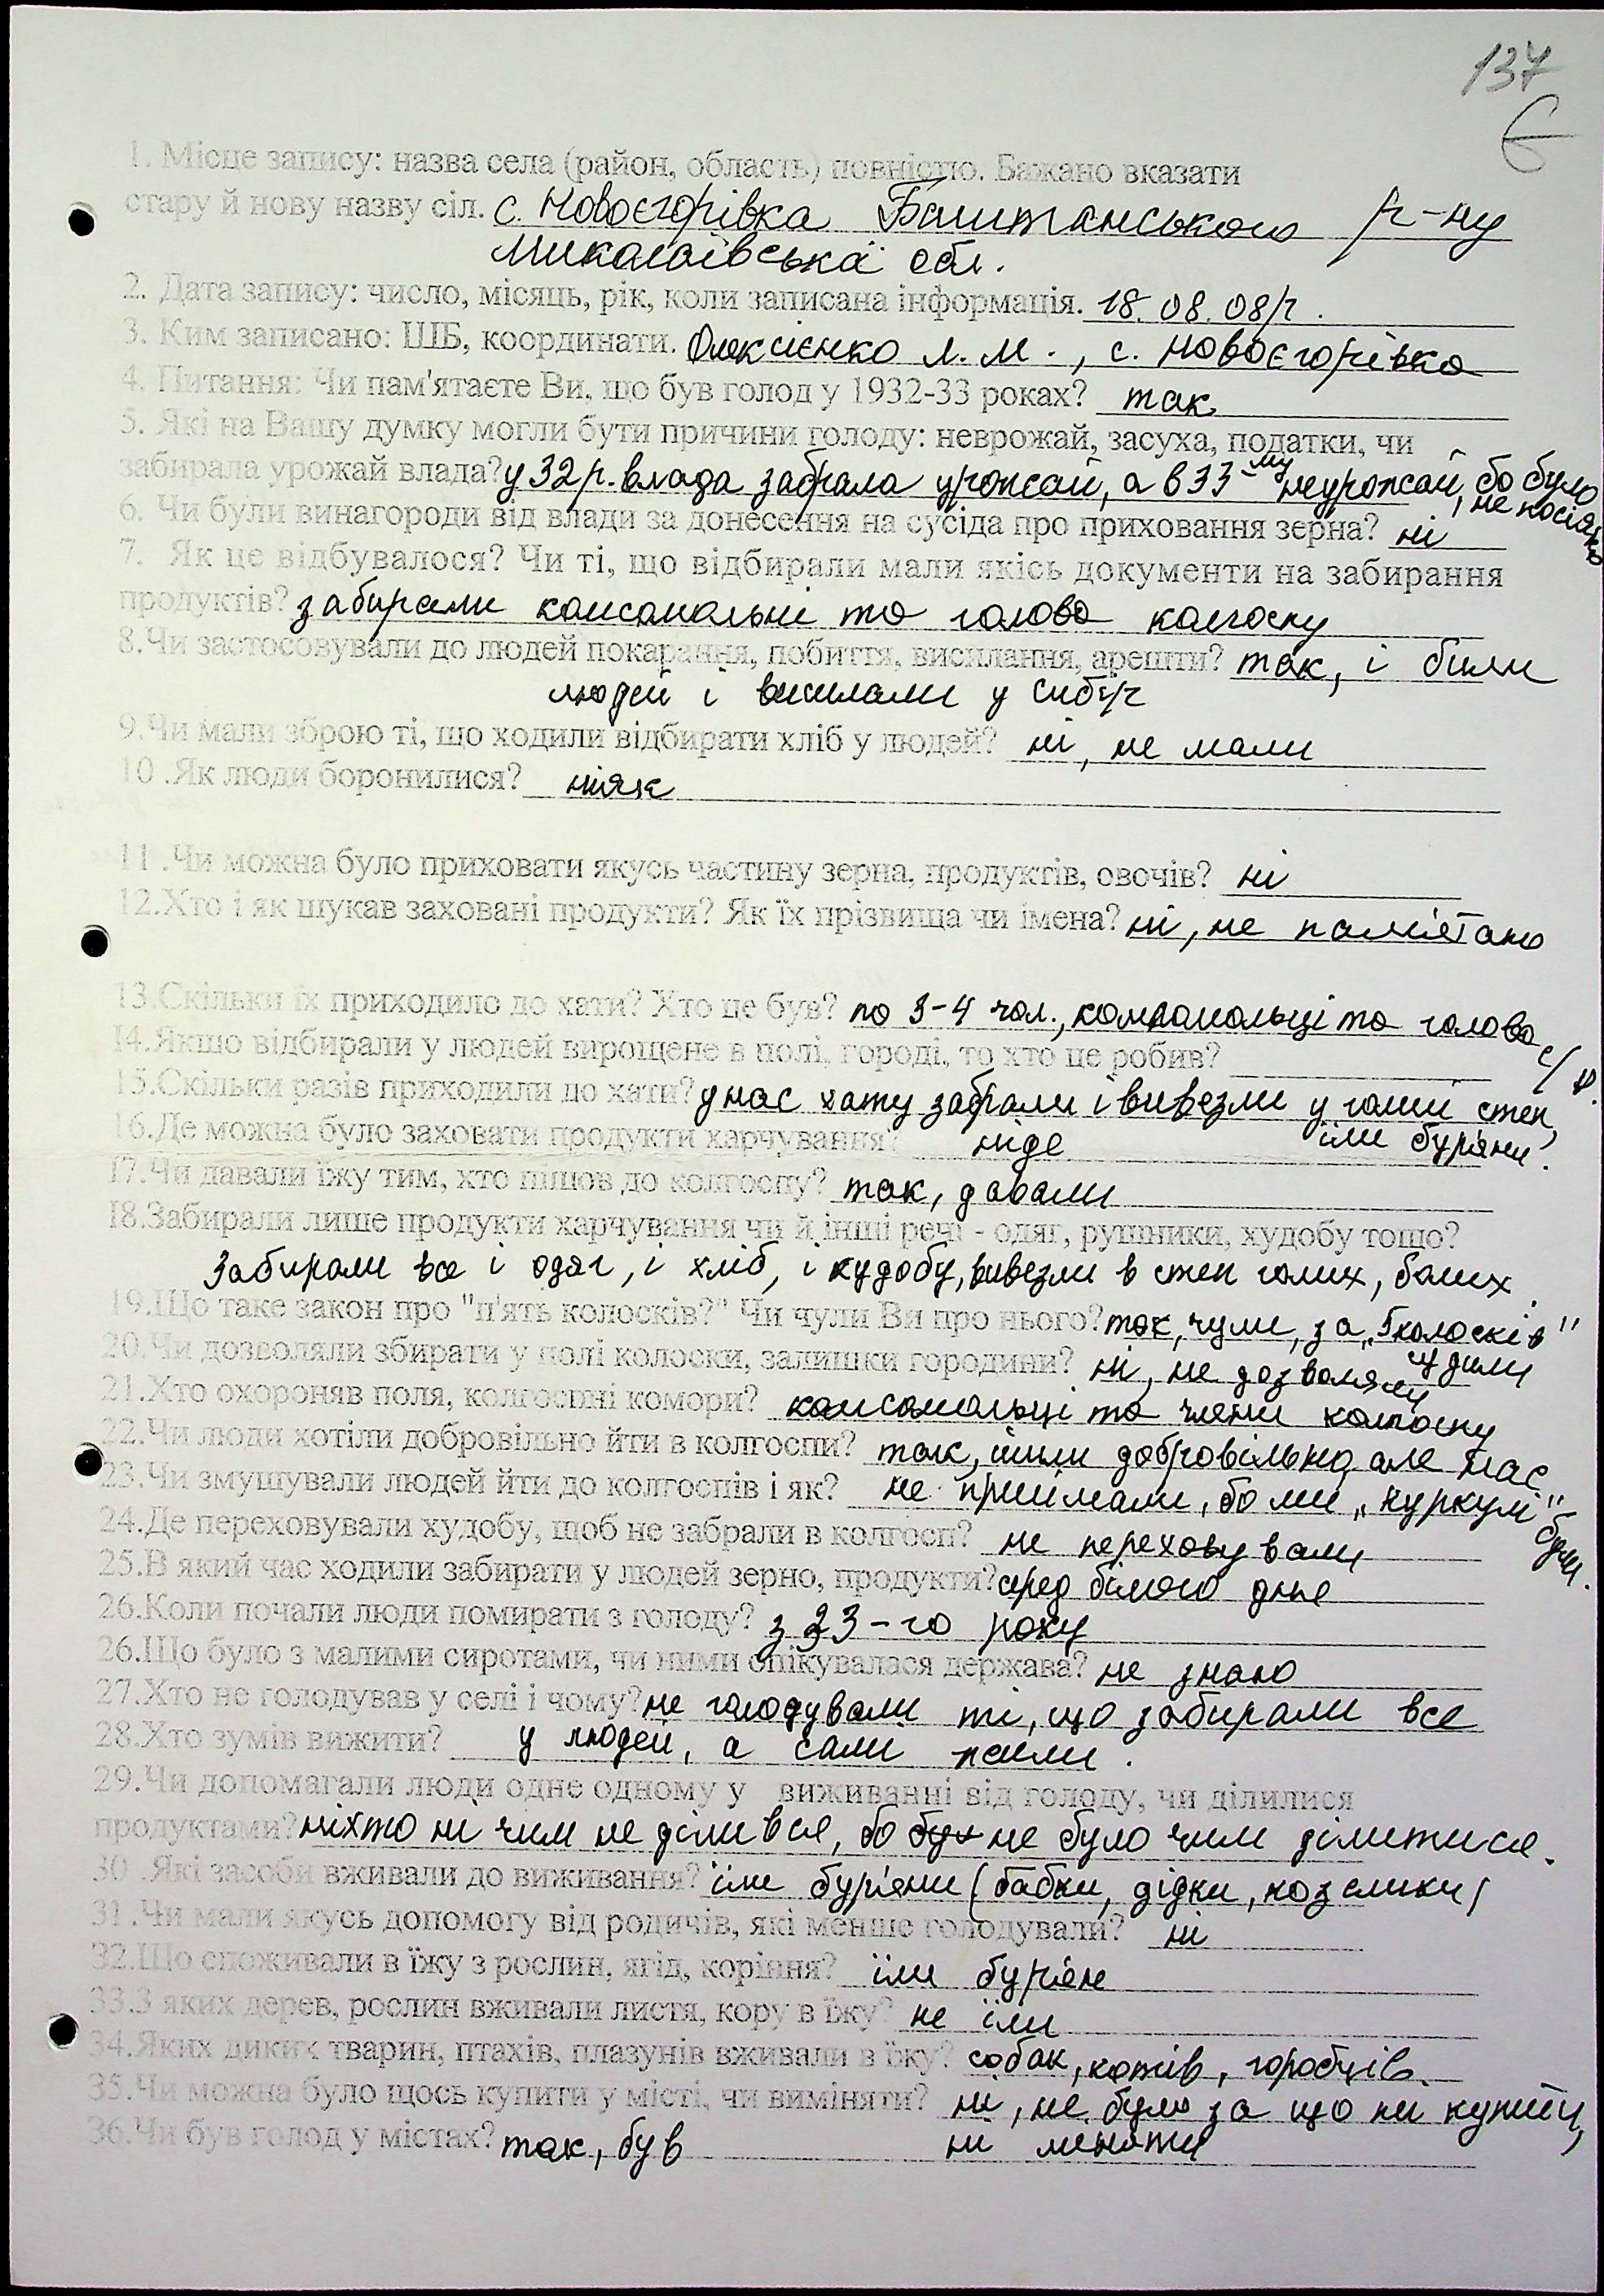 137
Є
1. Місце запису: назва села (район, область) повністю. Бажано вказати
стару й нову назву сіл. с. Новоєгорівка Баштанського р-ну
Миколаївська обл.
2. Дата запису: число, місяць, рік, коли записана інформація. 18.08.08р.
3. Ким записано: ПІБ, координати. Олексієнко Л.М., с. Новоєгорівка
4. Питання: Чи пам'ятаєте Ви, що був голод у 1932-33 роках? так
5. Які на Вашу думку могли бути причини голоду: неврожай, засуха, податки, чи
забирала урожай влада? у 32 р. влада забрала урожай, а в 33-му неурожай, бо було не посіяно
6. Чи були винагороди від влади за донесення на сусіда про приховання зерна? ні
7. Як це відбувалося? Чи ті, що відбирали мали якісь документи на забирання
продуктів? забирали комсомольці та голова колгоспу
8.Чи застосовували до людей покарання, побиття, висилання, арешти? так, і били
людей і висилали у Сибір
9.Чи мали зброю ті, що ходили відбирати хліб у людей? ні, не мали
10 .Як люди боронилися? ніяк
11 .Чи можна було приховати якусь частину зерна, продуктів, овочів? ні
12.Хто і як шукав заховані продукти? Як їх прізвища чи імена? ні, не пам'ятаю
13.Скільки їх приходило до хати? Хто це був? по 3-4 чол., комсомольці та голова с/р.
14.Якщо відбирали у людей вирощене в полі, городі, то хто це робив?
15.Скільки разів приходили до хати? у нас хату забрали і вивезли у голий степ,
їли бур'яни.
16.Де можна було заховати продукти харчування? ніде
17.Чи давали їжу тим, хто пішов до колгоспу? так, давали
18.Забирали лише продукти харчування чи й інші речі - одяг, рушники, худобу тощо?
Забирали все і одяг, і хліб, і худобу, вивезли в степ голих, босих.
19.Що таке закон про "п'ять колосків?" Чи чули Ви про нього? так, чули, за „5 колосків"
судили
20.Чи дозволяли збирати у полі колоски, залишки городини? ні, не дозволяли
21.Хто охороняв поля, колгоспні комори? комсомольці та члени колгоспу
22.Чи люди хотіли добровільно йти в колгоспи? так, йшли добровільно, але нас
23.Чи змушували людей йти до колгоспів і як? не приймали, бо ми „куркулі" були.
24.Де переховували худобу, щоб не забрали в колгосп? не переховували
25.В який час ходили забирати у людей зерно, продукти? серед білого дня
26.Коли почали люди помирати з голоду? з 33-го року
26.Що було з малими сиротами, чи ними опікувалася держава? не знаю
27.Хто не голодував у селі і чому? не голодували ті, що забирали все
28.Хто зумів вижити? у людей, а самі
29.Чи допомагали люди одне одному у виживанні від голоду, чи ділилися
продуктами? ніхто ні чим не ділився, бо не було чим ділитися.
30 .Які засоби вживали до виживання? їли бур'яни (бабки, дідки, козелики)
31.Чи мали якусь допомогу від родичів, які менше голодували? ні
32.Що споживали в їжу з рослин, ягід, коріння? їли бур'ян
33.З яких дерев, рослин вживали листя, кору в їжу? не їли
34.Яких диких тварин, птахів, плазунів вживали в їжу? собак, котів, горобців.
35.Чи можна було щось купити у місті, чи виміняти? ні, не було за що ни купити,
ні меняти
36.Чи був голод у містах? так, був